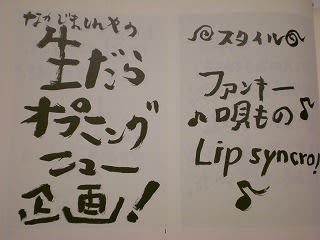 なかじましんやの
生だら
オープニング
ニュー
企画!
スタイル
ファンキー
唄もの
Lip syncro!
1